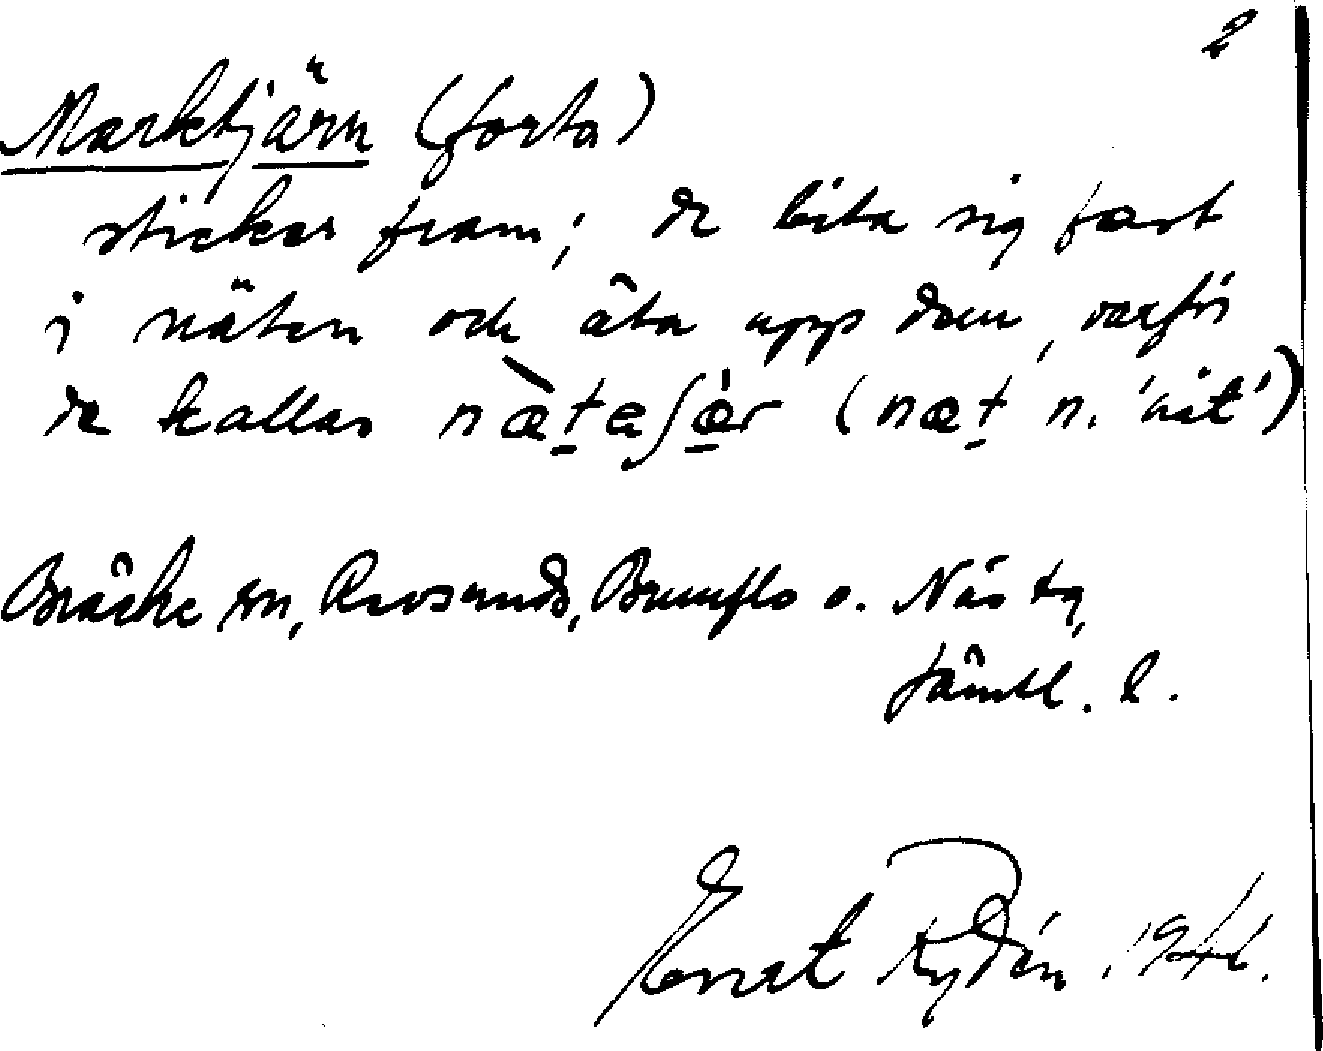 2
Marktjärn (forts)
sticker fram; de bita sig fast
i näten och äta upp dem, varför
de kallas næ̀teʃæ̀r (næt n. 'nät')
Bräcke sn, Revsunds, Brunflo o. Näs tg,
Jämtl. l.
Rydén 1941.